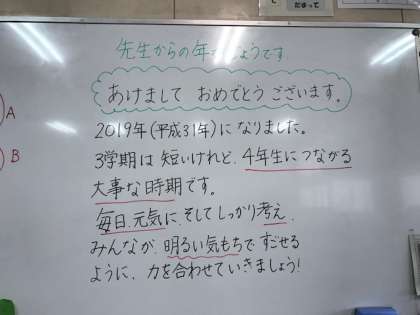 だまって
先生からの年 しょうです
あけまして おめでとう ございます。
A
2019年(平成31年)になりました。
B
3学期は 短いけれど、4年生につながる
大事な時期です。
毎日、元気に、そして しっかり考え、
みんなが、明るい気もちで すごせる
ように、力を合わせていきましょう!